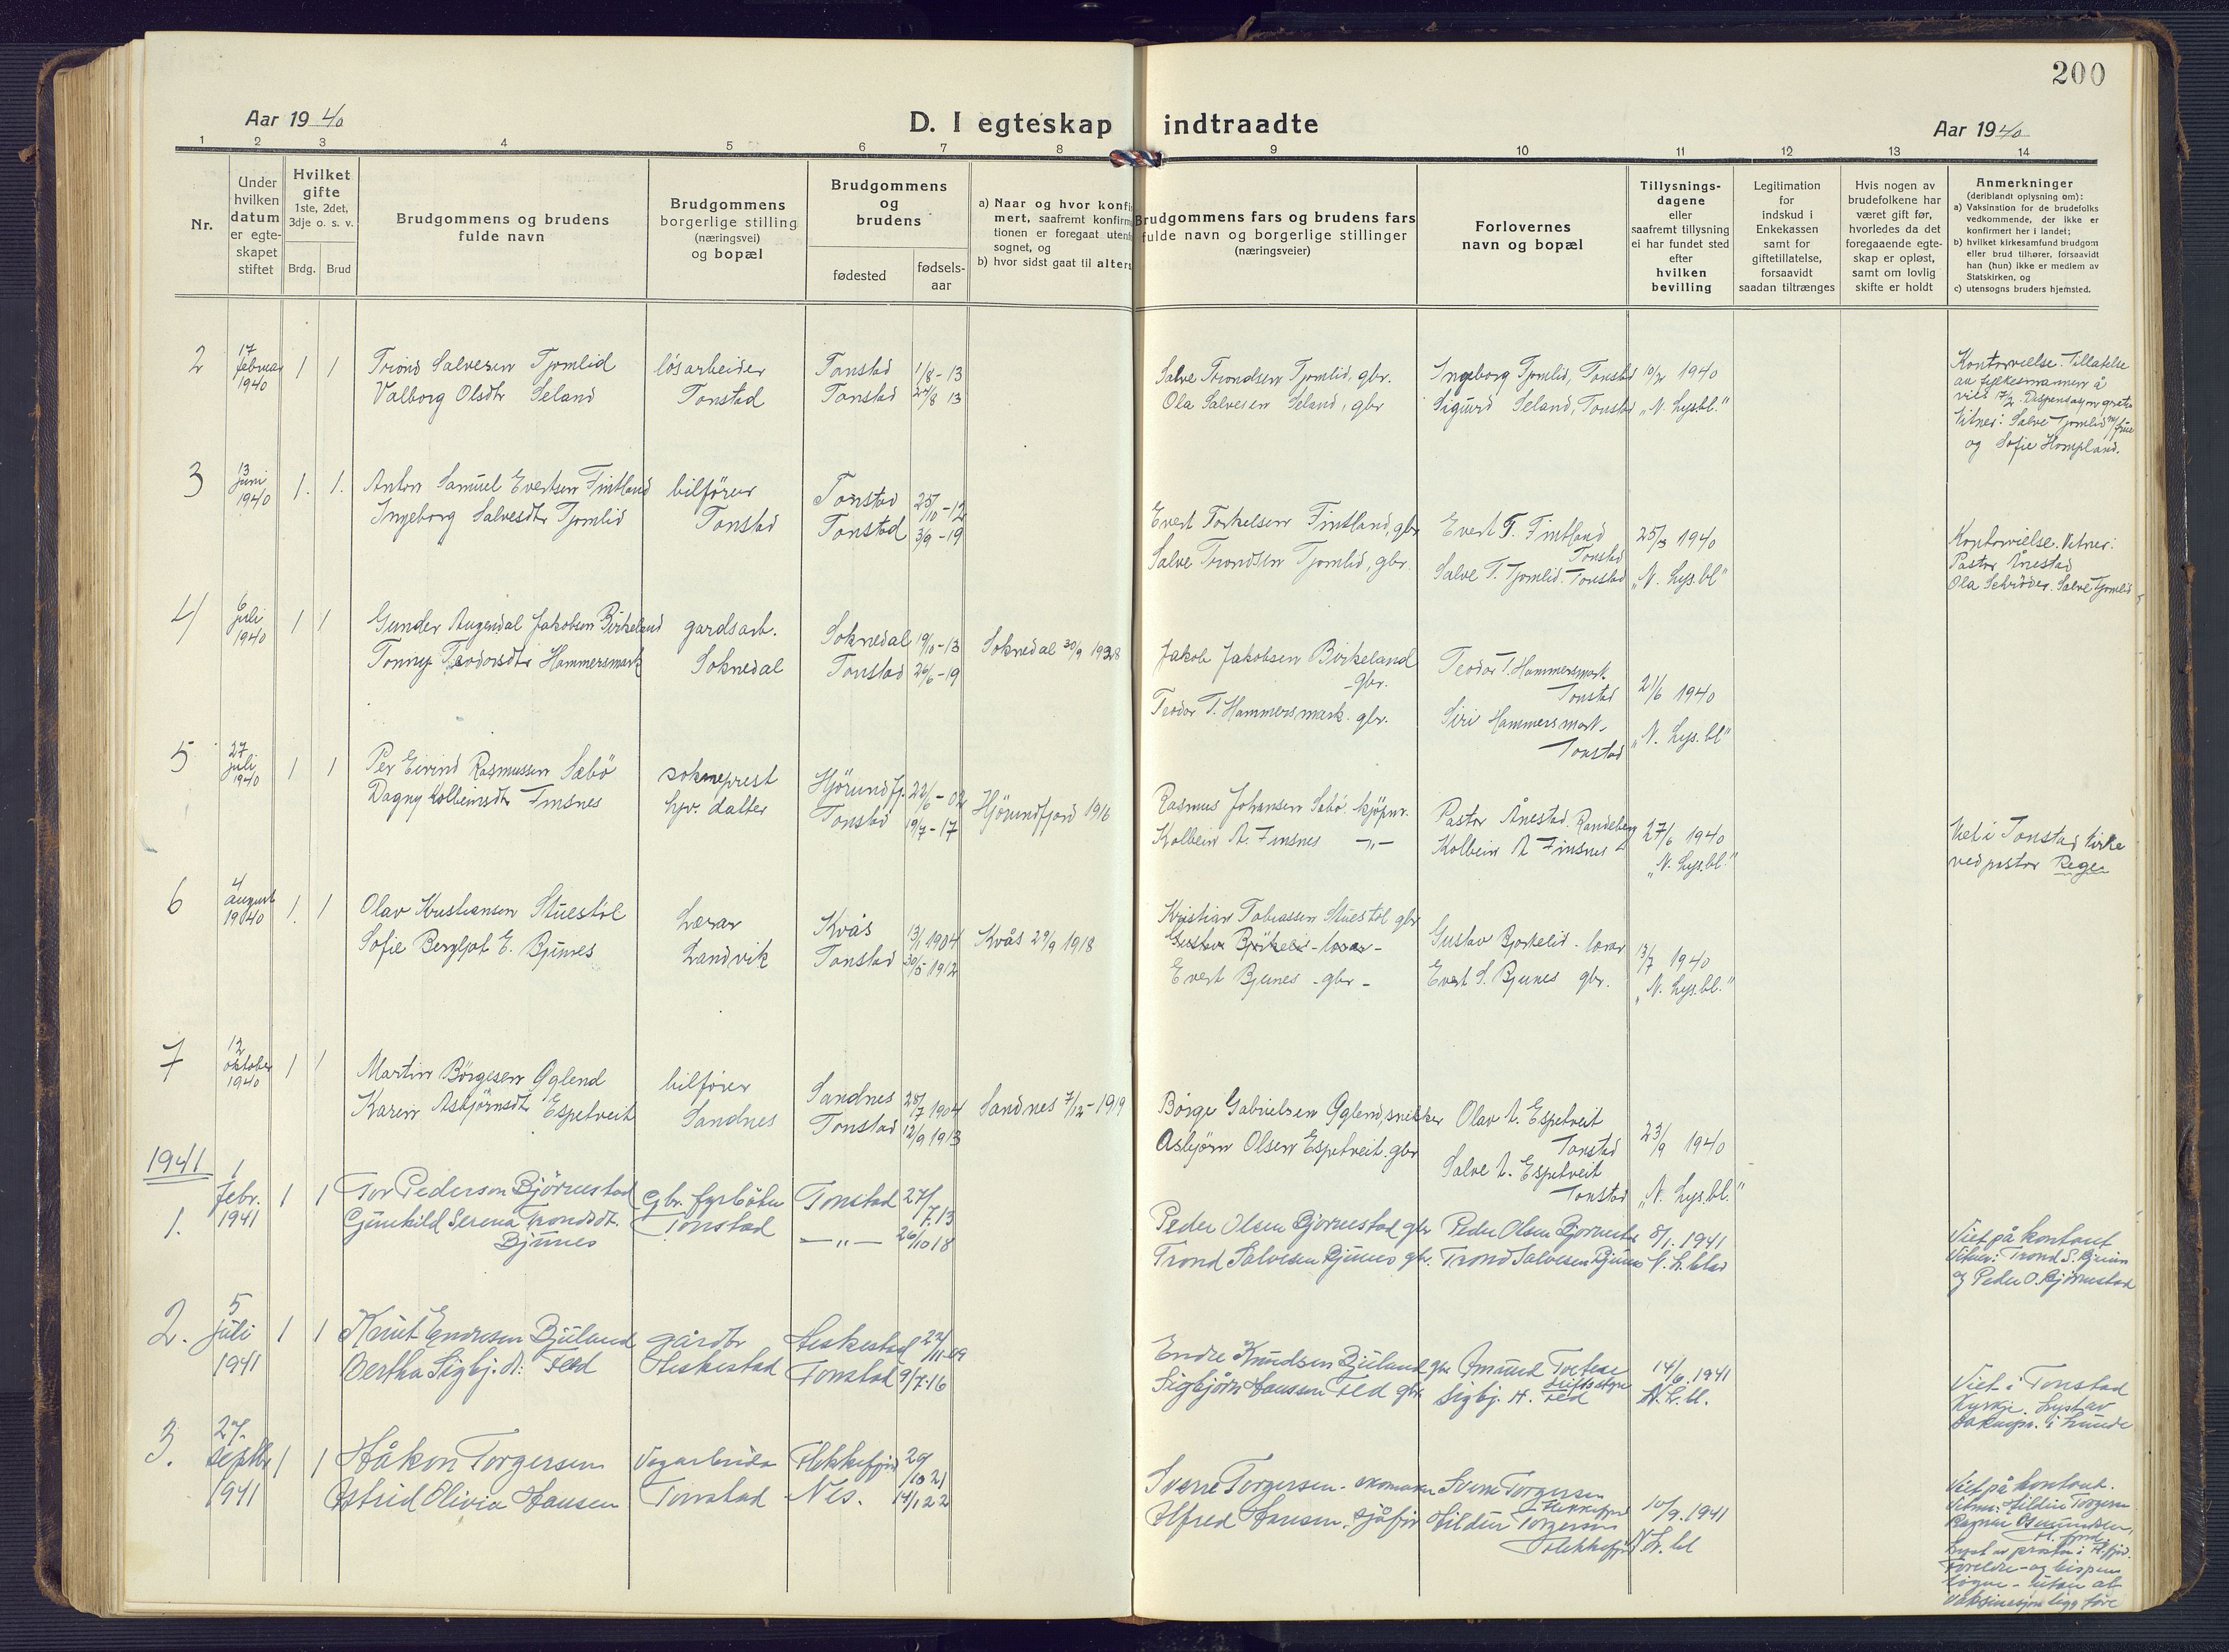 200
Aar 19 40
D. I egteskap indtraadte
Aar 19 40
1 2 3 4 5 6 7 8 9 10 11 12 13 14
Nr.
Under hvilken datum er egte-skapet stiftet
Hvilket gifte
1ste, 2det, 3dje o. s. v.
Brdg. Brud
Brudgommens og brudens fulde navn
Brudgommens borgerlige stilling (næringsvei) og bopæl
Brudgommens og brudens
fødested
fødsels-aar
a) Naar og hvor konfir
mert, saafremt konfirm
tionen er foregaat uten
sognet, og
b) hvor sidst gaat til alters
Brudgommens fars og brudens fars
fulde navn og borgerlige stillinger
(næringsveier)
Forlovernes
navn og bopæl
Tillysnings-
dagene
eller
saafremt tillysning
ei har fundet sted
efter
hvilken
bevilling
Legitimation
for
indskud i
Enkekassen
samt for
giftetillatelse,
forsaavidt
saadan tiltrænges
Hvis nogen av
brudefolkene har
været gift før,
hvorledes da det
foregaaende egte-
skap er opløst,
samt om lovlig
skifte er holdt
Anmerkninger
(deriblandt oplysning om):
a) Vaksination for de brudefolks
vedkommende, der ikke er
konfirmert her i landet;
b) hvilket kirkesamfund brudgom
eller brud tilhører, forsaavidt
han (hun) ikke er medlem av
Statskirken, og
c) utensogns bruders hjemsted.
2 17 februar 1940 1 1
Trond Salvesen Tjomlid løsarbeider Tonstad 1/8-13
Valborg Olsdtr Seland Tonstad Tonstad 24/8 13
Salve Trondsen Tjomlid, gbr. Ingeborg Tjomlid, Tonstad 10/2 1940
Ola Salvesen Seland, gbr Sigurd Seland, Tonstad „N. Lysbl."
Kontorvielse. Tillatelse
av fylkesmannen å
vies 17/2. Dispensasjon gratis
Vitner: Salve Tjomlid m/frue
og Sofie Hompland.
3 13 juni 1940 1. 1.
Anton Samuel Evertsen Fintland bilfører Tonstad 25/10-12
Ingeborg Salvesdtr Tjomlid Tonstad Tonstad 3/9-19
Evert Torkelsen Fintland, gbr Evert T. Fintland Tonstad 25/3 1940
Salve Trondsen Tjomlid, gbr. Salve T. Tjomlid. Tonstad „N. Lys.bl"
Kontorvielse. Vitner:
Pastor Ånestad
Ola Schrøder. Salve Tjomlid
4 6 juli 1940 1 1
Gunder Augendal Jakobsen Birkeland gardsarb. Soknedal 19/10-13 Soknedal 30/9 1928
Tonny Teodorsdtr Hammersmark Soknedal Tonstad 26/6-19
Jakob Jakobsen Birkeland gbr. Teodor T. Hammersmark Tonstad 21/6 1940
Teodor T. Hammersmark. gbr. Siri Hammersmark Tonstad „N. Lys.bl"
5 27 juli 1940 1 1
Per Eivind Rasmussen Sæbø sokneprest Hjørundfj. 22/6-02 Hjørundfjord 1916
Dagny Kolbeinsdtr Finsnes hjv. datter Tonstad 19/7-17
Rasmus Johansen Sæbø. kjøpm. Pastor Ånestad. Randeberg 27/6 1940
Kolbein A. Finsnes —„— Kolbein A Finsnes „N. Lys.bl."
Viet i Tonstad kirke
ved pastor Rege
6 4 august 1940 1. 1
Olav Kristiansen Stuestøl Lærar Kvås 13/1 1904 Kvås 29/9 1918
Sofie Bergljot E. Bjunes Landvik Tonstad 30/5 1912
Kristian Tobiassen Stuestøl gbr
Gustav Bjørkelid - lærar - Gustav Bjørkelid - lærar 13/7 1940
Evert Bjunes - gbr - Evert S. Bjunes gbr. „N. Lys.bl."
7 12 oktober 1940 1 1
Martin Börgesen Öglend bilfører Sandnes 28/7 1904 Sandnes 7/12-1919
Karen Asbjørnsdtr Espetveit Sandnes Tonstad 12/9 1913
Börge Gabrielsen Öglend, snikker Olav A. Espetveit Tonstad 23/9 1940
Asbjørn Olsen Espetveit. gbr Salve A. Espetveit Tonstad „N. Lys.bl."
1941
1. 1 febr. 1941 1 1
Tor Pederson Björnestad Gbr. fyrbøter Tonstad 27/7.13
Gunhild Serena Trondsdt. Bjunes Tonstad —„— 26/10 18
Peder Olsen Bjørnestad gbr Peder Olsen Bjørnestad 8/1. 1941
Trond Salvesen Bjunes gbr. Trond Salvesen Bjunes N. L. blad
Viet på kontoret
Vitner: Trond S. Bjunes
og Peder O. Bjørnestad
2. 5 juli 1941 1 1
Knut Endresen Bjuland gårdbr Heskestad 22/11-09
Bertha Sigbj.dt: Fed Heskestad Tonstad 9/7-16
Endre Knudsen Bjuland gbr Amund
Sigbjörn Hanssen Fed gbr. Sigbj. H. Fed 14/6. 1941 N. L. bl.
Viet i Tonstad
Kyrkje. Lyst av
soknepr. i Lunde
3. 27. septbr 1941 1 1
Håkon Torgersen Vegarbeider Flekkefjord 29/10 21
Astrid Olivia Hansen Tonstad Nes. 14/1 22
Sverre Torgersen - skomaker Sverre Torgersen Flekkefjord 10/9. 1941
Alfred Hansen. sjåfør Hildur Torgersen Flekkefjord N. L. bl
Viet på kontoret.
Vitner: Hildur Torgersen
Ragnar Osmundsen,
Fl. fjord.
Lyst av prosten i Fl.fjd.